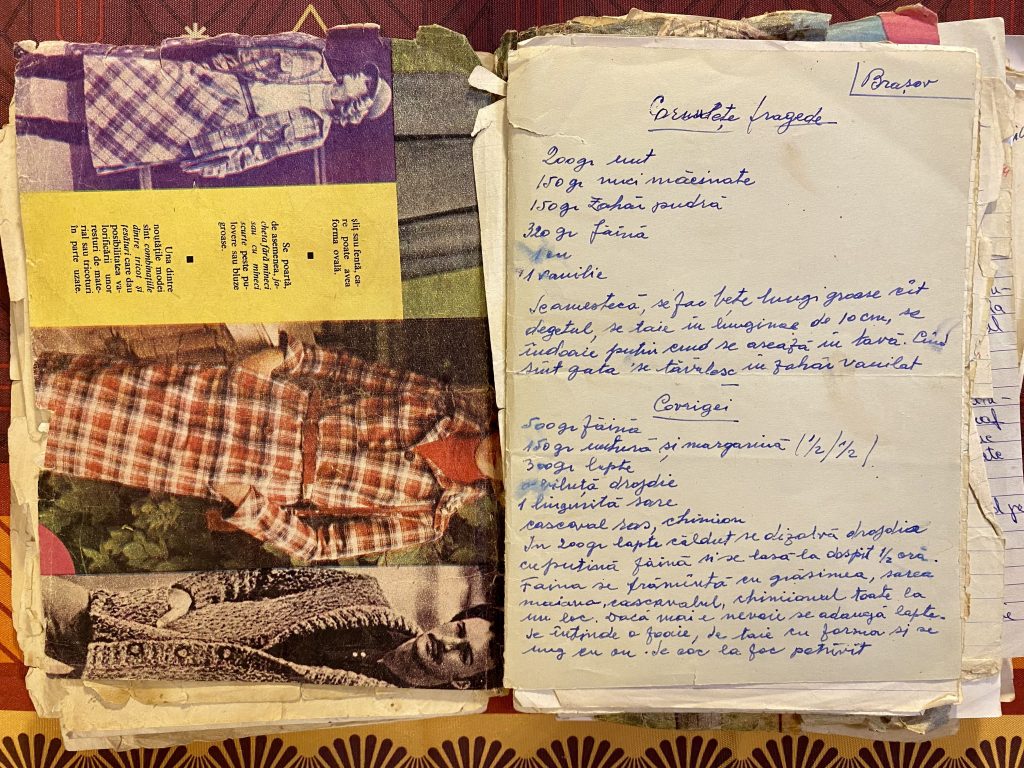 șliț sau fentă, ca-
re poate avea
forma ovală.
■
Se poartă,
de asemenea, ja-
cheta fără mîneci
sau cu mîneci
scurte peste pu-
lovere sau bluze
groase.
■
Una dintre
noutățile modei
sînt combinațiile
dintre tricot și
țesături care dau
posibilitatea va-
lorificării unor
resturi de mate-
rial sau tricoturi
în parte uzate.
Brașov
Cornulețe fragede
200gr unt
150gr nuci măcinate
150gr Zahăr pudră
320 gr făină
1 ou
1 vanilie
Se amestecă, se fac bețe lungi groase cît
degetul, se taie în lungime de 10 cm, se
îndoaie puțin cînd se așează în tavă. Cînd
sînt gata se tăvălesc în zahăr vanilat
Covrigei
500gr făină
150gr untură și margarină (1/2/1/2)
300gr lapte
drojdie
1 linguriță sare
cascaval ras, chimion
In 200gr lapte căldut se dizolvă drojdia
cu puțină făină si se lasă la dospit 1/2 oră.
Faina se frămîntă cu grăsimea, sarea
maiaua, cascavalul, chimionul toate la
un loc. Dacă mai e nevoie se adaugă lapte.
Se întinde o foaie, se taie cu forma si se
ung cu ou. Se coc la foc potrivit